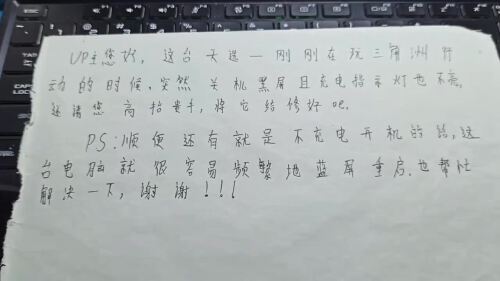 UP主您好，这台天选一刚刚在玩三角洲行
动的时候，突然关机黑屏且充电指示灯也不亮，
还请您高抬贵手，将它给修好吧。
PS：顺便还有就是不充电开机的话，这
台电脑就很容易频繁地蓝屏重启，也帮忙
解决一下，谢谢！！！